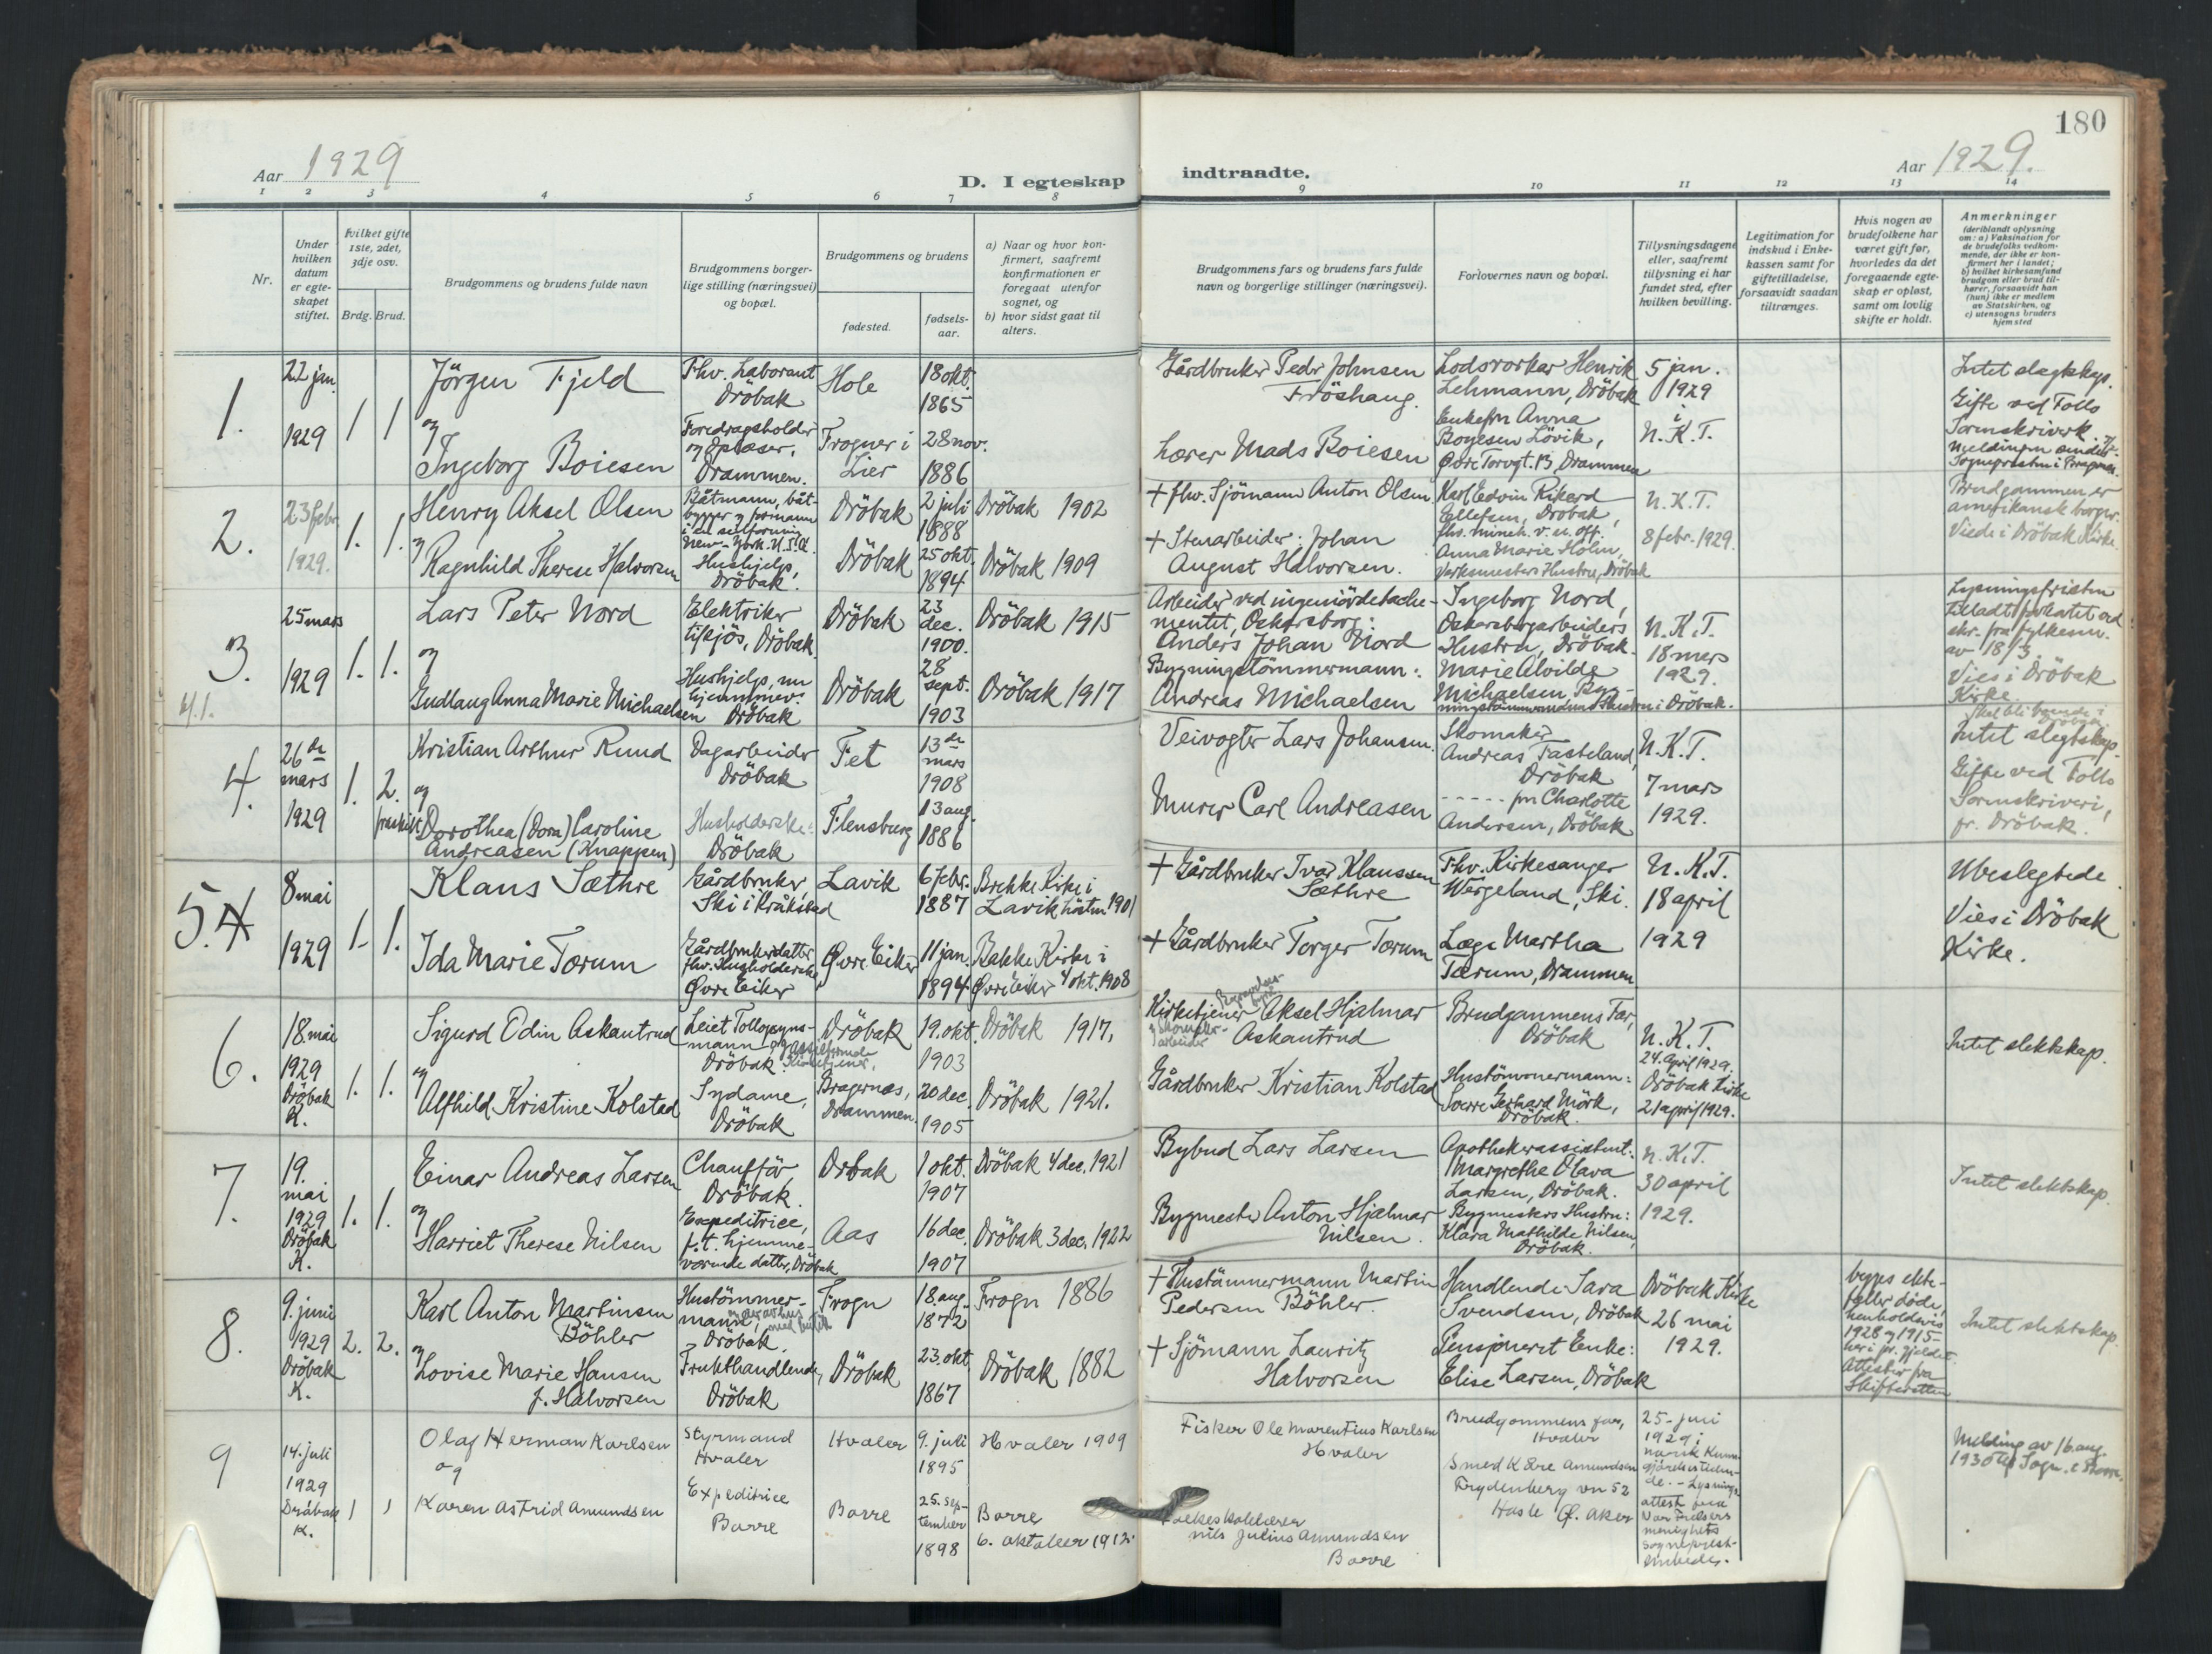 180
Aar 1929
D. I egteskap indtraadte.
Aar 1929.
1 2 3 4 5 6 7 8 9 10 11 12 13 14
Nr.
Under hvilken datum er egteskapet stiftet.
Hvilket gifte 1ste, 2det, 3dje osv.
Brdg. Brud.
Brudgommens og brudens fulde navn
Brudgommens borgerlige stilling (næringsvei) og bopæl.
Brudgommens og brudens
fødested.
fødselsaar.
a) Naar og hvor konfirmert, saafremt konfirmationen er foregaat utenfor sognet, og
b) hvor sidst gaat til alters.
Brudgommens fars og brudens fars fulde navn og borgerlige stillinger (næringsvei).
Forlovernes navn og bopæl.
Tillysningsdagene eller, saafremt tillysning ei har fundet sted, efter hvilken bevilling.
Legitimation for indskud i Enkekassen samt for giftetilladelse, forsaavidt saadan tiltrænges.
Hvis nogen av brudefolkene har været gift før, hvorledes da det foregaaende egteskap er opløst, samt om lovlig skifte er holdt.
Anmerkninger (deriblandt oplysning om: a) Vaksination for de brudefolks vedkommende, der ikke er konfirmert her i landet; b) hvilket kirkesamfund brudgom eller brud tilhører, forsaavidt han (hun) ikke er medlem av Statskirken, og c) utensogns bruders hjemsted
1.
22 jan. 1929
1 1
Jörgen Fjeld
og
Ingeborg Boiesen
Fhv. Laborant
Dröbak
Foredragsholder
og Oplæser.
Drammen.
Hole
Frogner i Lier
18 okt. 1865
28 nov. 1886
Gårdbruker Peder Johnsen
Fröshaug.
Lærer Mads Boiesen
Lodsvorker Henrik
Lehmann, Dröbak
Enkefru Anna
Boyesen Lövik,
Övre Torvgt. 13, Drammen
5 jan.
1929
i
N.K.T.
Intet slegtskap.
Gifte ved Follo
Sorenskriverk.
2.
23 febr. 1929.
1. 1.
Henry Aksel Olsen
og
Ragnhild Therese Halvorsen
Båtmann, båt-
bygger og formann
New-York. U.S.A.
Hushjelp,
Dröbak.
Dröbak
Dröbak
2 juli 1888
25 okt. 1894
Dröbak 1902
Dröbak 1909
+ fhv. Sjömann Anton Olsen
+ Stenarbeider: Johan
August Halvorsen.
Karl Edvin Rikard
Ellefsen, Dröbak,
fhv. minch. u. off.
Anna Marie Holm,
Verksmesters Hustru, Dröbak
N.K.T.
8 febr. 1929.
Brudgommen er
amerikansk borger.
Viede i Dröbak Kirke.
3.
4.1.
25 mars 1929
1. 1.
Lars Peter Nord
og
Gudlaug Anna Marie Michaelsen
Elektriker
tilsjös, Dröbak.
Hushjelp, nu
hjemmev.
Dröbak
Dröbak
Dröbak
23 dec. 1900.
28 sept. 1903
Dröbak 1915
Dröbak 1917
Arbeider ved ingeniördetache-
mentet, Oskarsborg:
Anders Johan Nord
Bygningstömmermann:
Andreas Michaelsen
Ingeborg Nord,
Oskarsborgarbeiders
Hustru, Dröbak.
Marie Alvilde
Michaelsen Byg-
ningstömmermanns Hustru i Dröbak.
N.K.T.
18 mars
1929.
Lysningsfristen
tilladt forkortet ved
skr. fra fylkesm.
av 18/3.
Vies i Dröbak
Kirke.
4.
26de mars 1929
1. 2.
fraskilt
Kristian Arthur Rund
og
Dorothea (Dora) Caroline
Andreasen (Knappen)
Dagarbeider
Dröbak
Husholderske
Dröbak
Fet
Flensburg
13de mars 1908
13 aug. 1886
Veivogter Lars Johansen.
Murer Carl Andreasen
Skomaker
Andreas Fasteland,
Dröbak
fru Charlotte
Andersen, Dröbak
N.K.T.
7 mars
1929.
Intet slegtskap.
Gifte ved Follo
Sorenskriveri,
pr. Dröbak.
5. 4
8 mai 1929
1. 1.
Klaus Sæthre
Ida Marie Torum
Gårdbruker,
Ski i Kråkstad
Gårdbrukerdatter,
fhv. Husholderske
Övre Eiker
Lavik
Övre Eiker
6 febr. 1887
11 jan. 1894
Brekke Kirke i
Lavik hösten 1901
Bakke Kirke i
Övre Eiker 4 okt. 1908
+ Gårdbruker Ivar Klaussen
Sæthre
+ Gårdbruker Torger Torum
Fhv. Kirkesanger
Wergeland, Ski.
Læge Martha
Tærum, Drammen
N.K.T.
18 april
1929
Ubeslegtede.
Vies i Dröbak
Kirke.
6.
18. mai
1929
Dröbak K.
1. 1.
Sigurd Odin Askautrud
og
Alfhild Kristine Kolstad
Leiet Tollopsyns-
mann og assisterende
Dröbak. Kirketjener.
Sydame,
Dröbak
Dröbak
Bragernæs,
Drammen.
19. okt. 1903
20 dec. 1905
Dröbak 1917,
Dröbak 1921.
Kirketjener Aksel Hjalmar
Askautrud
Gårdbruker Kristian Kolstad
Brudgommens Far,
Dröbak
Hustömmermann:
Sverre Gerhard Mörk,
Dröbak.
N.K.T.
24. April 1929.
Dröbak Kirke
21 april 1929.
Intet slektskap.
7.
19. mai 1929
Dröbak K.
1. 1.
Einar Andreas Larsen
og
Harriet Therese Nilsen
Chaufför,
Dröbak.
Expeditrice,
f.t. hjemme-
værende datter, Dröbak
Dröbak
Aas
1 okt. 1907
16 dec. 1907
Dröbak 4 dec. 1921
Dröbak 3 dec. 1922
Bybud Lars Larsen
Bygmester Anton Hjalmar
Nilsen.
Apothekerassistent:
Margrethe Olava
Larsen, Dröbak.
Bygmesters Hustru:
Klara Mathilde Nilsen,
Dröbak.
N.K.T.
30 april
1929.
Intet slektskap.
8.
9. juni
1929
Dröbak K.
2. 2.
Karl Anton Martinsen
Böhler
og
Lovise Marie Hansen
f. Halvorsen
Hustömmer-
mann,
Dröbak.
Frukthandlende,
Dröbak
Frogn
Dröbak
18. aug. 1872
23. okt. 1867
Frogn 1886
Dröbak 1882
+ Hustömmermann Martin
Pedersen Böhler.
+ Sjömann Lauritz
Halvorsen
Handlende Sara
Svendsen, Dröbak
Pensjoneret Enke:
Elise Larsen, Dröbak
Dröbak Kirke
26 mai
1929.
begges ekte-
feller döde,
henholdsvis
1928 og 1915
her i pr. gjeldet.
Attester fra
Skifteretten
Intet slektskap.
9
14. juli
1929
Dröbak K.
1 1
Olaf Herman Karlsen
og
Karen Astrid Amundsen
Styrmand
Hvaler
Expeditrice
Borre
Hvaler
Borre
9. juli 1895
25. september 1898
Hvaler 1909
Borre
6. oktober 1912.
Fisker Ole Marentius Karlsen
Hvaler
Folkeskolelærer
Nils Julius Amundsen
Borre
Brudgommens far,
Hvaler
Smed Kåre Amundsen
Frydenberg vn 52
Hasle Ö. Aker
25. juni
1929 i
norsk Kunn-
gjörelsestiden-
de. - Lysnings-
attest fra
Vor Frelsers
menighets
sogneprest-
embede.
Melding av 16 aug.
1930 til Sogn. i Borre.